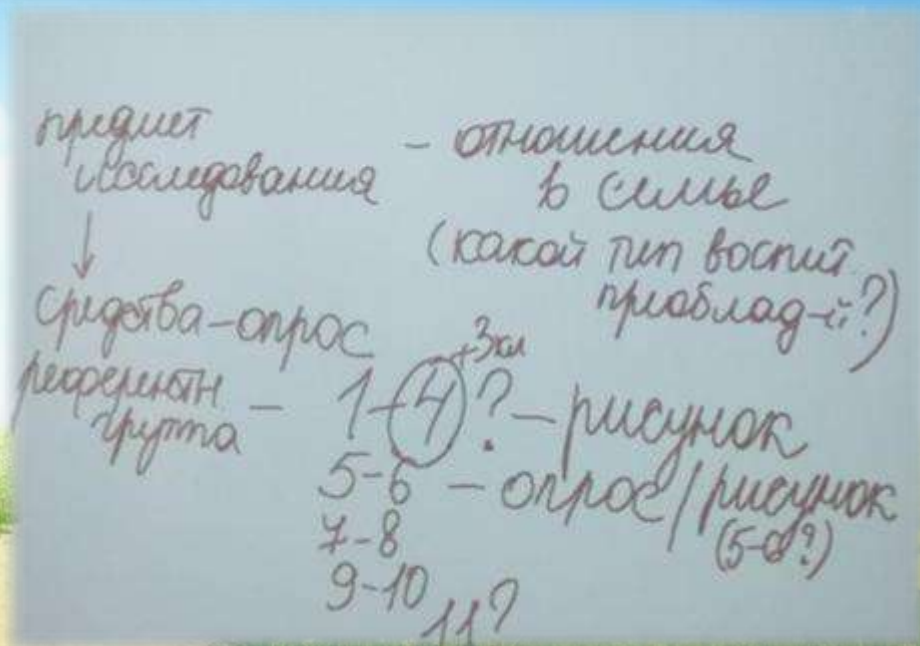 предмет
исследования – отношения
в семье
(какой тип воспит.
преоблад-й?)
↓
средства – опрос
референтн
группа – 1-4? – рисунок
+3кл
5-6 – опрос/рисунок
(5-6?)
7-8
9-10
11?